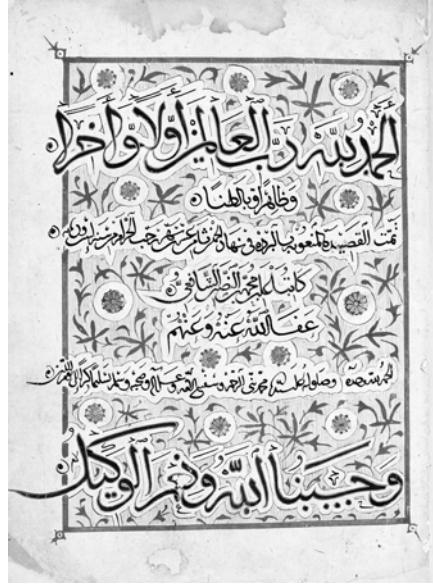 الحمد لله رب العالمين أولا وآخرا
وظاهرا وباطنا
تمت القصيدة المنعوتة بالبردة في نهار الخميس ثامن عشرين شهر رجب الحرام
كاتبه محمد الشافعي
عفا الله عنه وعنهم
الحمد لله وحده وصلواته على سيدنا محمد نبي الرحمة وشفيع الأمة وعلى آله وصحبه وسلم تسليما كثيرا
وحسبنا الله ونعم الوكيل